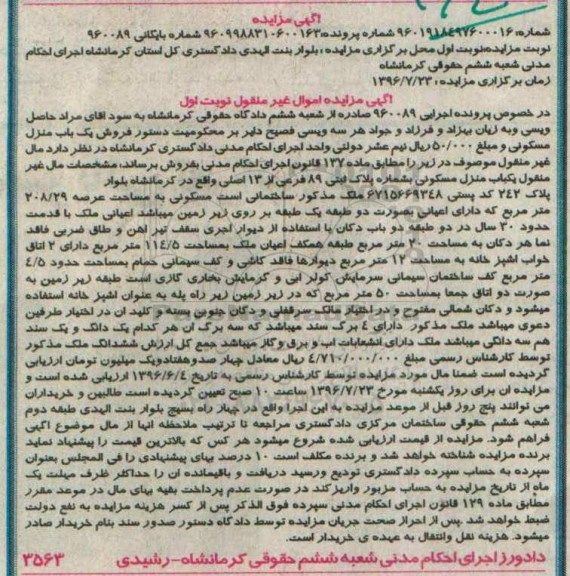 آگهی مزایده
شماره: ۹۶۰۱۹۱۸۴۹۷۶۰۰۰۱۶ شماره پرونده: ۹۶۰۹۹۸۸۳۱۰۶۰۰۱۶۳ شماره بایگانی ۹۶۰۰۸۹
نوبت مزایده:نوبت اول محل برگزاری مزایده : بلوار بنت الهدی دادگستری کل استان کرمانشاه اجرای احکام
مدنی شعبه ششم حقوقی کرمانشاه
زمان برگزاری مزایده : ۱۳۹۶/۷/۲۳
آگهی مزایده اموال غیر منقول نوبت اول
در خصوص پرونده اجرایی ۹۶۰۰۸۹ صادره از شعبه ششم دادگاه حقوقی کرمانشاه به سود آقای مراد حاصل
ویسی وبه زیان بهزاد و فرزاد و جواد هر سه ویسی فصیح دایر بر محکومیت دستور فروش یک باب منزل
مسکونی و مبلغ ۵۰/۰۰۰ ریال نیم عشر دولتی واحد اجرای احکام مدنی دادگستری کرمانشاه در نظر دارد مال
غیر منقول موصوف در زیر را مطابق ماده ۱۳۷ قانون اجرای احکام مدنی بفروش برساند: مشخصات مال غیر
منقول یکباب منزل مسکونی بشماره پلاک ثبتی ۸۹ فرعی از ۱۳ اصلی واقع در کرمانشاه بلوار
پلاک ۲۴۲ کد پستی ۶۷۱۵۶۶۹۳۴۸ ملک مذکور ساختمانی است مسکونی به مساحت عرصه ۲۰۸/۲۹
متر مربع که دارای اعیانی بصورت دو طبقه یک طبقه بر روی زیر زمین میباشد اعیانی ملک با قدمت
حدود ۳۰ سال در دو طبقه دو باب دکان با استفاده از دیوار آجری سقف تیر آهن و طاق ضربی فاقد
نما هر دکان به مساحت ۲۰ متر مربع طبقه همکف اعیان ملک بمساحت ۱۱۴/۵ متر مربع دارای ۲ اتاق
خواب آشپز خانه به مساحت ۱۲ متر مربع دیوارها فاقد کاشی و کف سیمانی حمام بمساحت حدود ۴/۵
متر مربع کف ساختمان سیمانی سرمایش کولر آبی و گرمایش بخاری گازی است طبقه زیر زمین به
صورت دو اتاق جمعا بمساحت ۵۰ متر مربع که در زیر زمین زیر راه پله به عنوان آشپز خانه استفاده
میشود و دکان شمالی مفتوح و در اختیار مالک سرقفلی و دکان جنوبی بسته و کلید آن در اختیار طرفین
دعوی میباشد ملک مذکور دارای ۴ برگ سند میباشد که سه برگ آن هر کدام یک دانگ و یک سند
هم سه دانگی میباشد ملک دارای انشعابات آب و برق وگاز میباشد جمع کل ارزش ششدانگ ملک مذکور
توسط کارشناس رسمی مبلغ ۴/۷۱۰/۰۰۰/۰۰۰ ریال معادل چهار صدوهفتادویک میلیون تومان ارزیابی
گردیده است ضمنا مال مورد مزایده توسط کارشناس رسمی به تاریخ ۱۳۹۶/۶/۴ ارزیابی شده است و
مزایده آن برای روز یکشنبه مورخ ۱۳۹۶/۷/۲۳ ساعت ۱۰ صبح تعیین گردیده است طالبین و خریداران
می توانند پنج روز قبل از موعد مزایده به این اجرا واقع در چهار راه بسیج بلوار بنت الهدی طبقه دوم
شعبه ششم حقوقی ساختمان مرکزی دادگستری مراجعه تا ترتیب ملاحظه آنها از مال موضوع آگهی
فراهم شود. مزایده از قیمت ارزیابی شده شروع میشود هر کس که بالاترین قیمت را پیشنهاد نماید
برنده مزایده شناخته خواهد شد و برنده مکلف است ۱۰ درصد بهای پیشنهادی را فی المجلس بعنوان
سپرده به حساب سپرده دادگستری تودیع ورسید دریافت و باقیمانده آن را حداکثر ظرف مهلت یک
ماه از تاریخ مزایده به حساب مزبور واریز کند در صورت عدم پرداخت بقیه بهای مال در موعد مقرر
مطابق ماده ۱۲۹ قانون اجرای احکام مدنی سپرده فوق الذکر پس از کسر هزینه مزایده به نفع دولت
ضبط خواهد شد .پس از احراز صحت جریان مزایده توسط دادگاه دستور صدور سند بنام خریدار صادر
میشود. هزینه نقل وانتقال به عهده ی خریدار است.
دادورز اجرای احکام مدنی شعبه ششم حقوقی کرمانشاه-رشیدی ۳۵۶۳